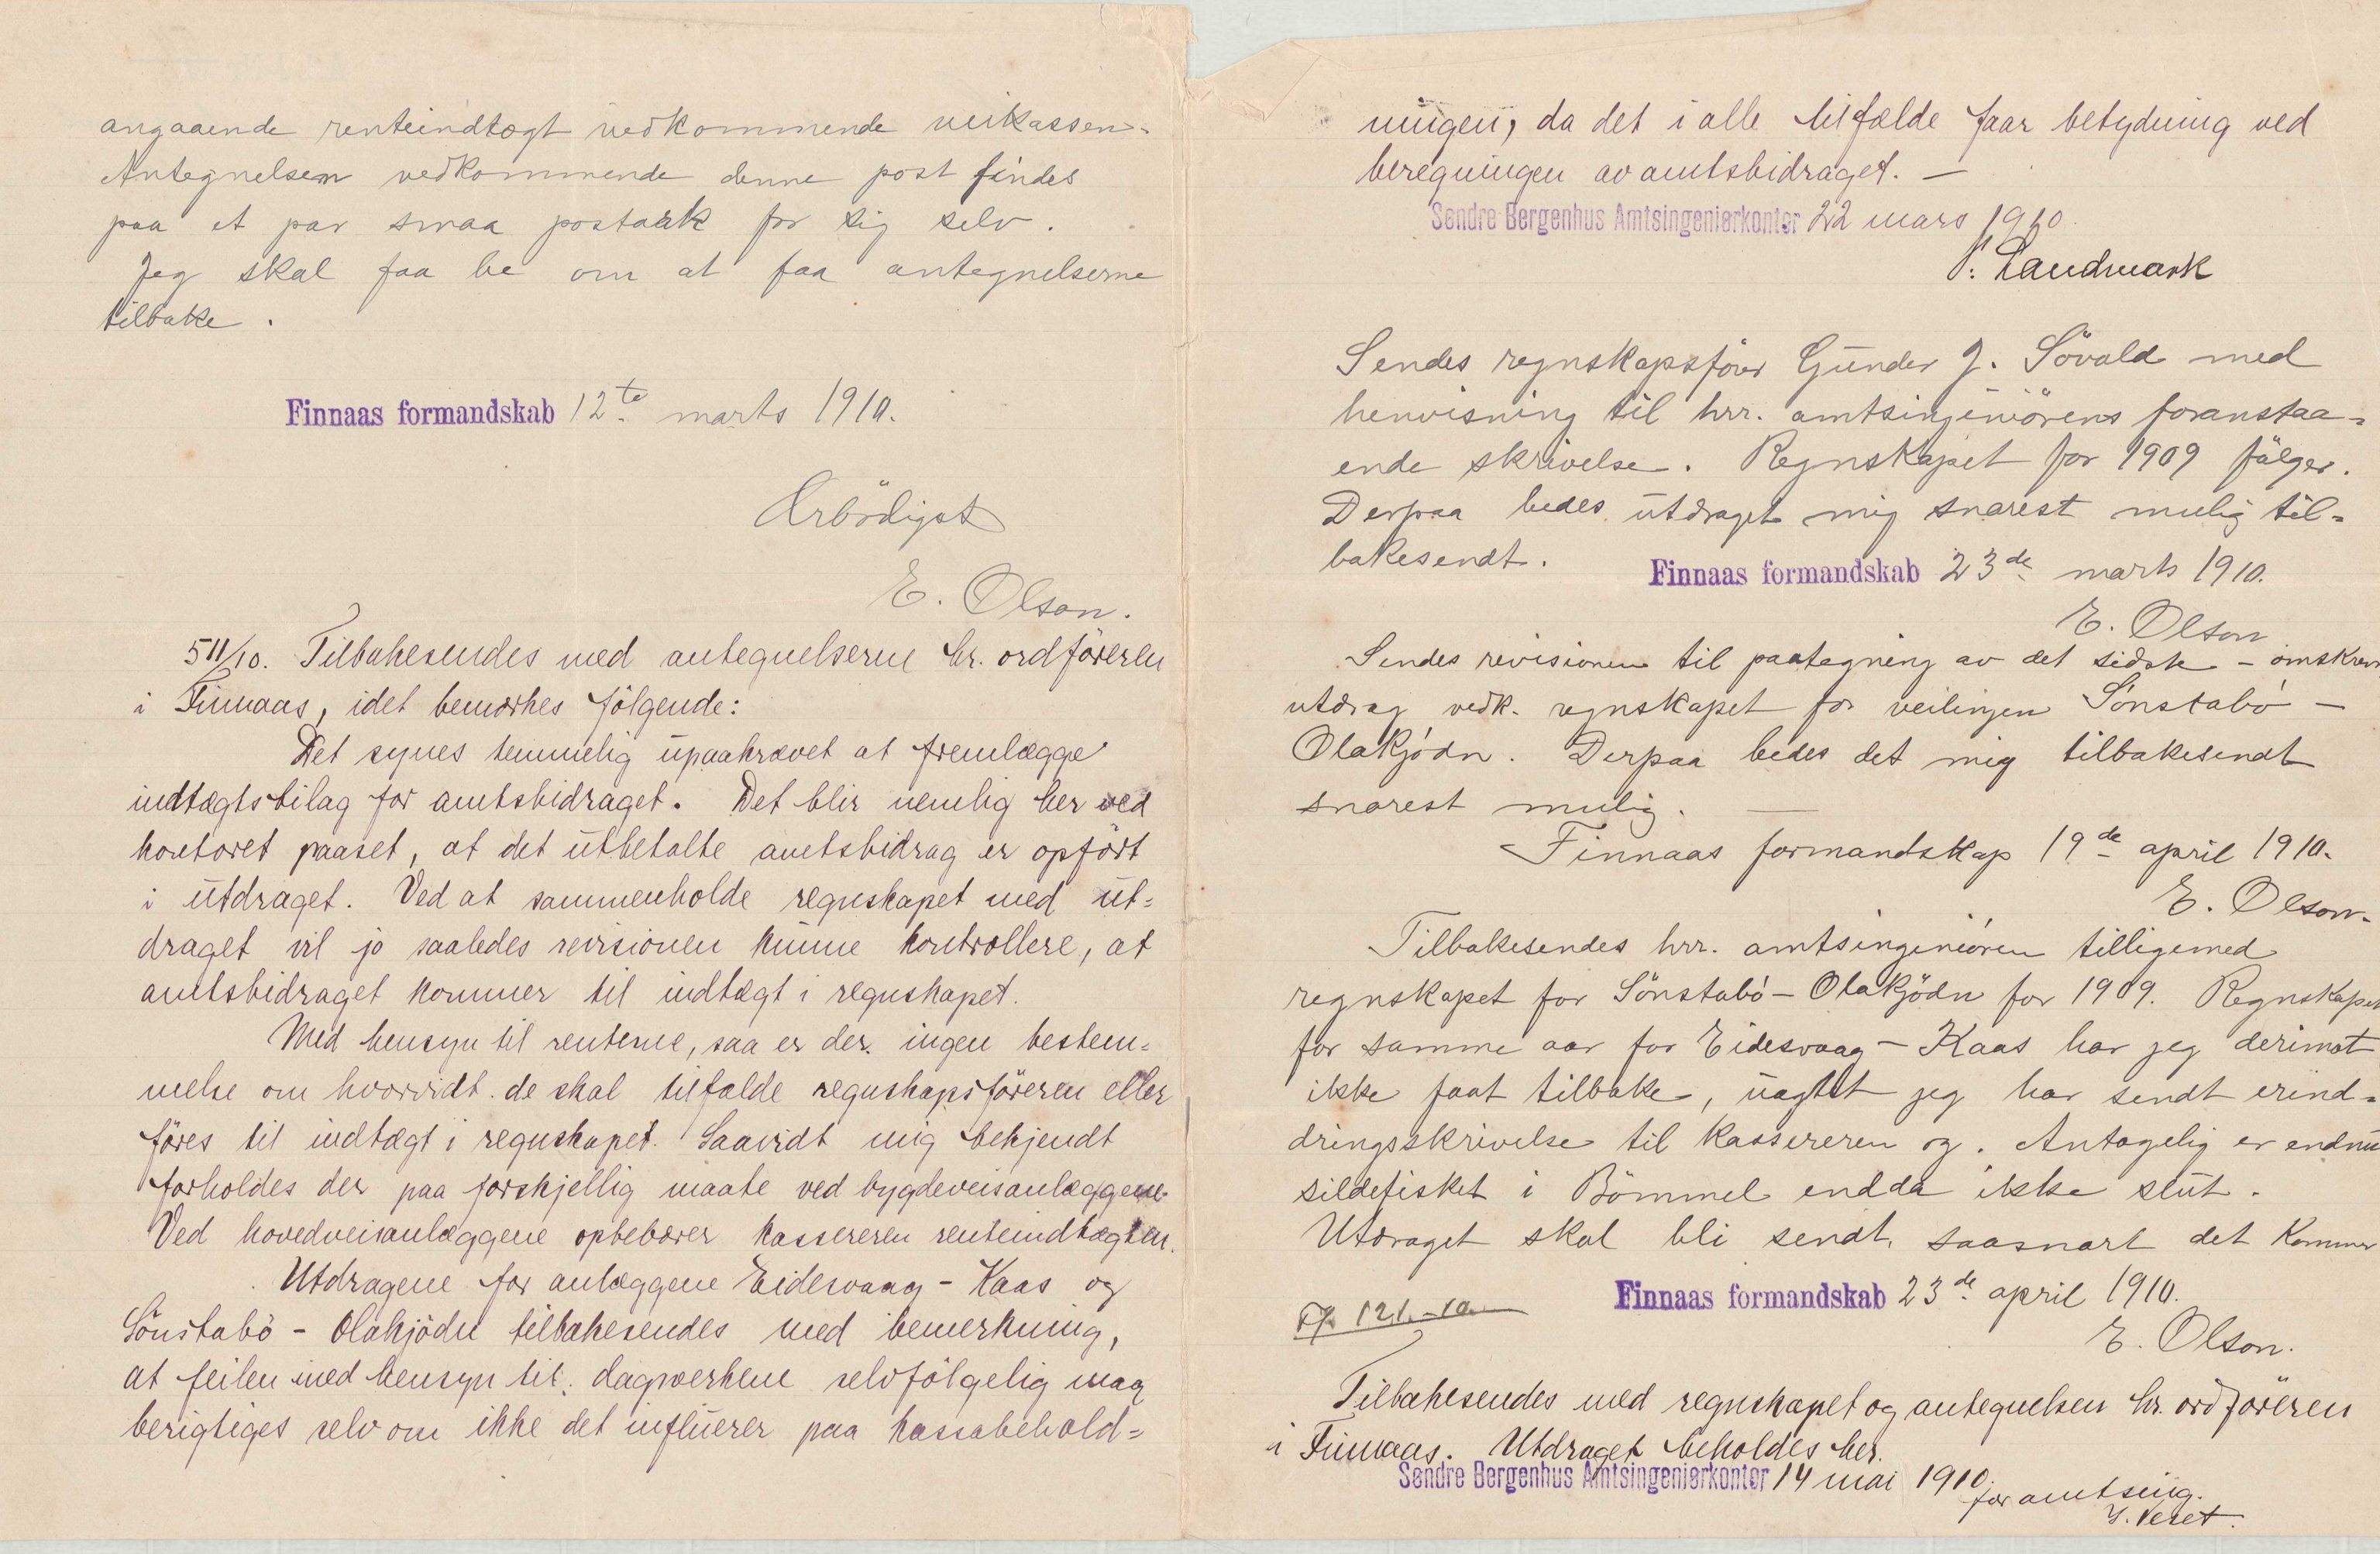 angaaende renteindtægt vedkommende veikassen.
Antegnelsen vedkommende denne post findes
paa et par smaa postark for sig selv.
Jeg skal faa be om at faa antegnelserne
tilbake.
Finnaas formandskab 12te marts 1910.
Ærbödigst
E. Olson.
511/10. Tilbakesendes med antegnelserne hr. ordföreren
i Finnaas, idet bemærkes fölgende:
Det synes temmelig upaakrævet at fremlægge
indtægtsbilag for amtsbidraget. Det blir nemlig her ved
kontoret paaset, at det utbetalte amtsbidrag er opfört
i utdraget. Ved at sammenholde regnskapet med ut=
draget vil jo saaledes revisionen kunne kontrollere, at
amtsbidraget kommer til indtægt i regnskapet.
Med hensyn til renterne, saa er der ingen bestem=
melse om hvorvidt de skal tilfalde regnskapsföreren eller
föres til indtægt i regnskapet. Saavidt mig bekjendt
forholdes der paa forskjellig maate ved bygdeveisanlæggene.
Ved hovedveisanlæggene oppebærer kassereren renteindtægten.
Utdragene for anlæggene Eidesvaag - Kaas og
Sönstabö - Olakjödn tilbakesendes med bemerkning,
at feilen med hensyn til dagverkene selvfölgelig maa
berigtiges selv om ikke det influerer paa kassabehold=
ningen, da det i alle tilfælde faar betydning ved
beregningen av amtsbidraget. —
Søndre Bergenhus Amtsingeniørkontor 22 mars 1910.
P. Landmark
Sendes regnskapsförer Gunder J. Sövold med
henvisning til hrr. amtsingeniörens foranstaa=
ende skrivelse. Regnskapet for 1909 fölger.
Derpaa bedes utdraget mig snarest mulig til=
bakesendt.
Finnaas formandskab 23de marts 1910.
E. Olson
Sendes revisionen til paategning av det sidste - omskrevne
utdrag vedk. regnskapet for veilinjen Sönstabö -
Olakjödn. Derpaa bedes det mig tilbakesendt
snarest mulig. —
Finnaas formandskap 19de april 1910.
E. Olson.
Tilbakesendes hrr. amtsingeniören tilligemed
regnskapet for Sönstabö - Olakjödn for 1909. Regnskapet
for samme aar for Eidesvaag - Kaas har jeg derimot
ikke faat tilbake, uagtet jeg har sendt erind=
dringsskrivelse til kassereren og. Antagelig er endnu
sildefisket i Bömmel endda ikke slut.
Utdraget skal bli sendt, saasnart det kommer
Finnaas formandskab 23de april 1910.
121.-10
E. Olson.
Tilbakesendes med regnskapet og antegnelsen hr. ordföreren
i Finnaas. Utdraget beholdes her.
Søndre Bergenhus Amtsingeniørkontor 14 mai 1910.
for amtsing.